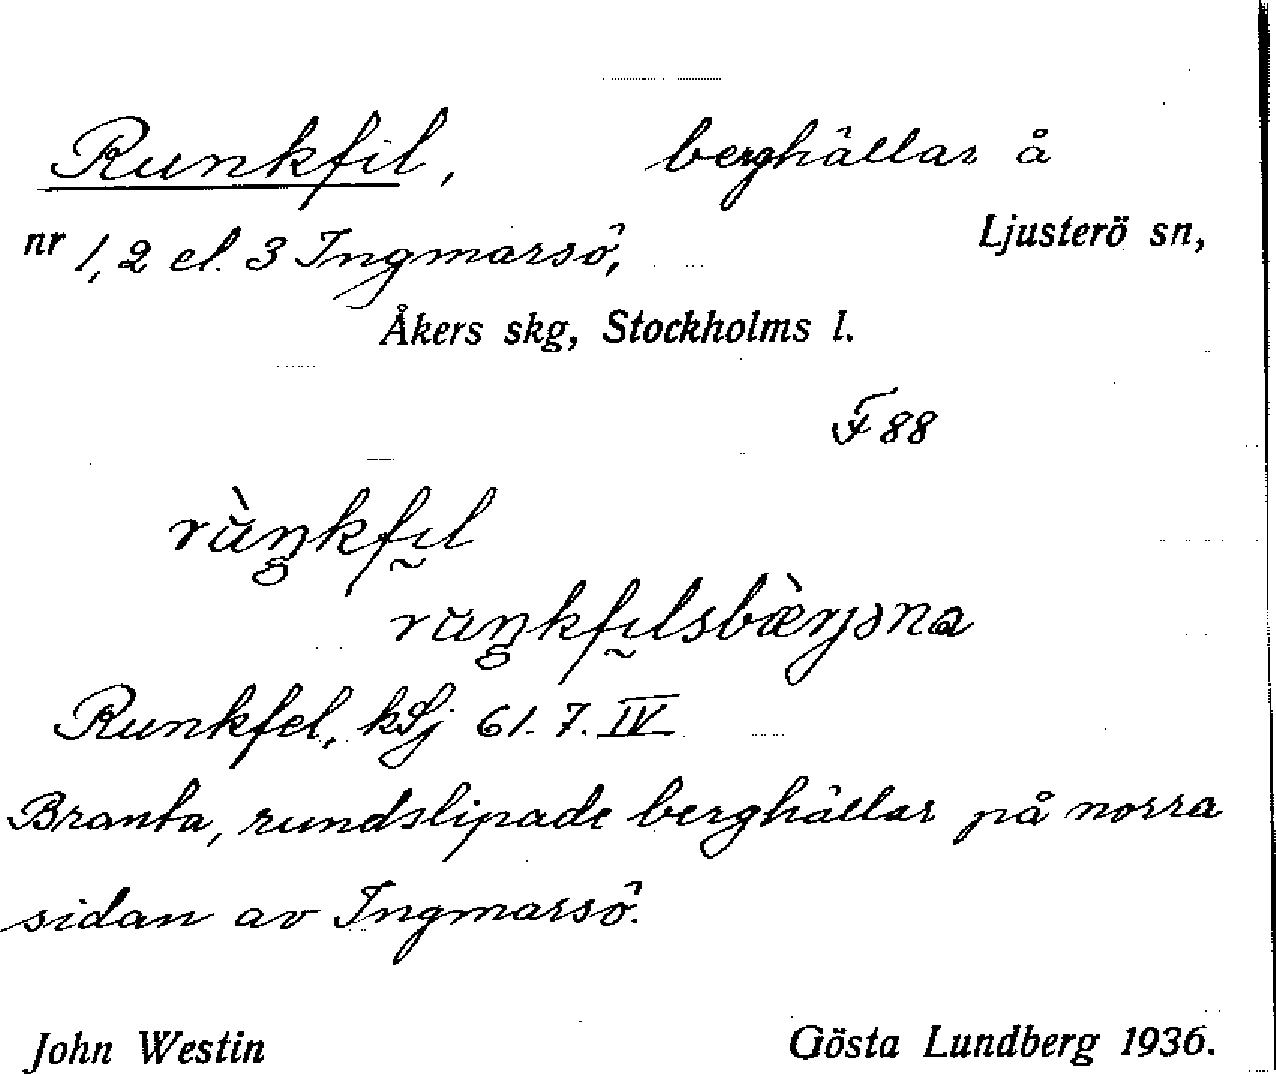 Runkfil, berghällar å
nr 1, 2 el. 3 Ingmarsö, Ljusterö sn,
Åkers skg, Stockholms l.
F 88
rùŋkfil
ruŋkfilsbæ̀rjəna
Runkfel, kSj 61. 7. IV
Branta, rundslipade berghällar på norra
sidan av Ingmarsö.
John Westin Gösta Lundberg 1936.